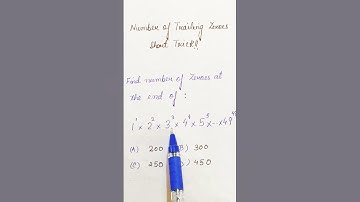 Number of Trailing Zeroes
Short Trick!!
Find number of Zeroes at
the end of :
1¹ × 2² × 3³ × 4⁴ × 5⁵ × ... × 49⁴⁹
(A) 200 (B) 300
(C) 250 (D) 450